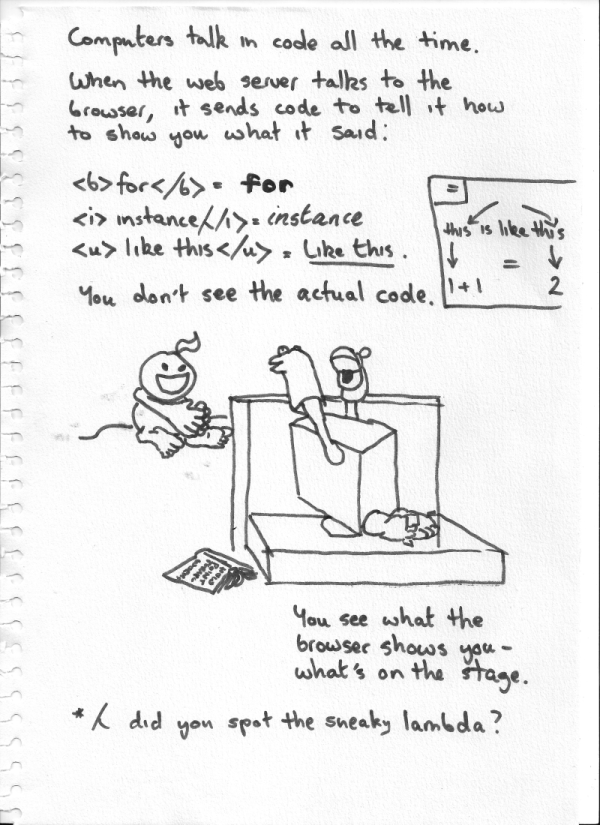 Computers talk in code all the time.
When the web server talks to the
browser, it sends code to tell it how
to show you what it said:
<b>for</b> = for
<i> instance⅄/i> = instance
<u> like this</u> = Like this.
=
this is like this
1+1 = 2
You don't see the actual code.
You see what the
browser shows you –
what's on the stage.
*⅄ did you spot the sneaky lambda?